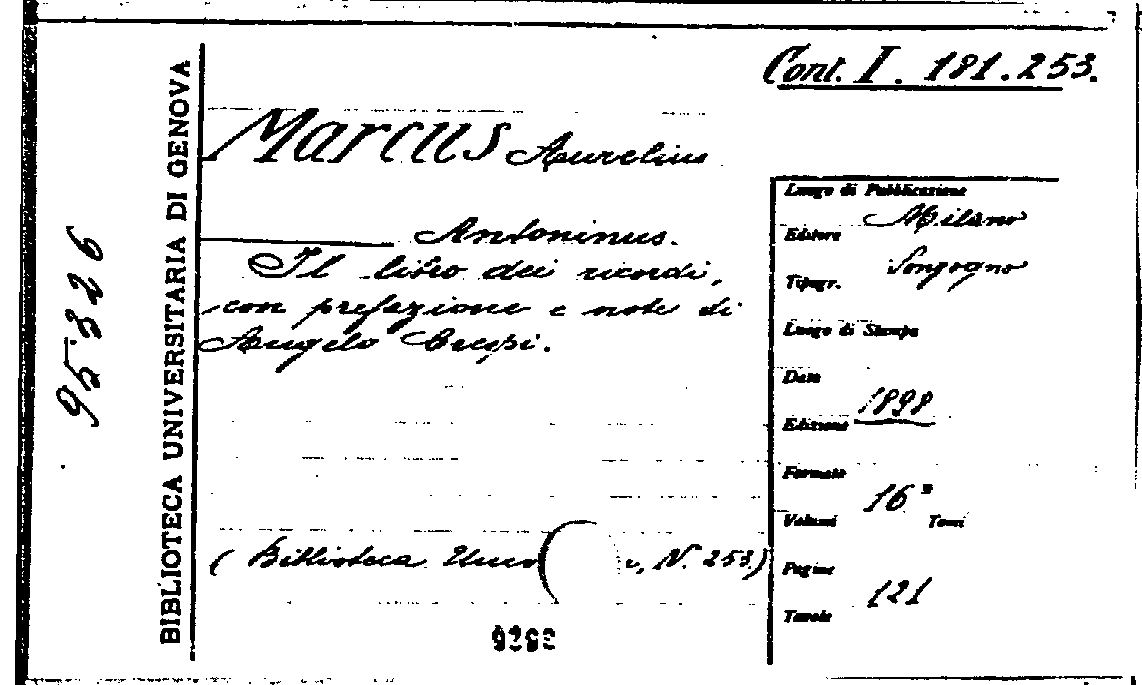 Cont. I. 181.253.
Marcus Aurelius
Antoninus.
Il libro dei ricordi,
con prefazione e note di
Angelo Crespi.
(Biblioteca N. 253)
BIBLIOTECA UNIVERSITARIA DI GENOVA
95326
Luogo di Pubblicazione
Milano
Editore
Sonzogno
Tipogr.
Luogo di Stampa
Data
1898
Edizione
Formato
16°
Volumi Tomi
Pagine
121
Tavole